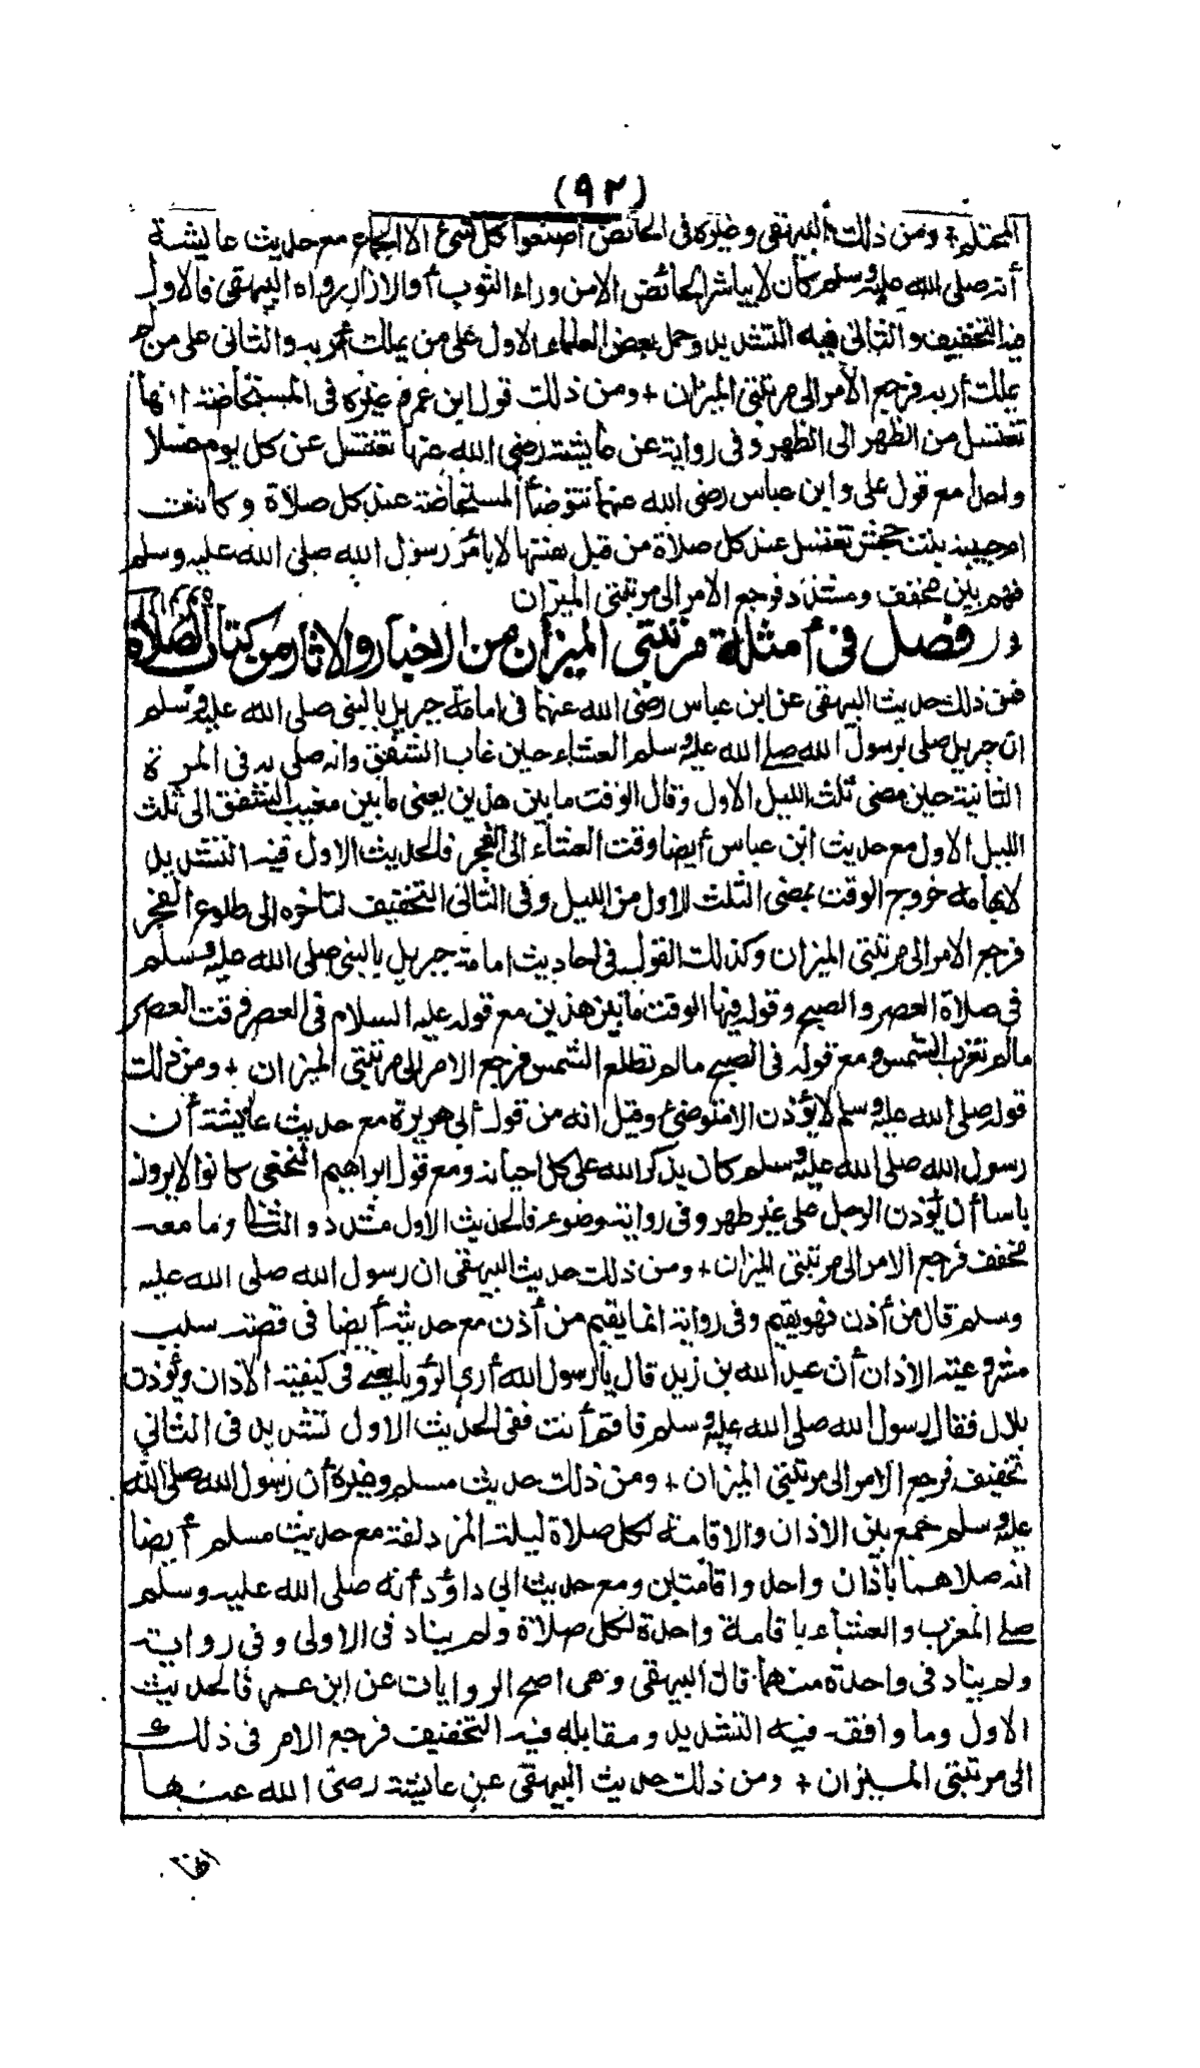 (٩٢)
ومن ذلك البيهقي وغيره في الحائض اصنعوا كل شئ الا الجماع مع حديث عايشة
أنه صلى الله عليه وسلم كان لا يباشر الحائض الا من وراء الثوب أو الازار رواه البيهقى فالاول
فيه التخفيف والثانى فيه التشديد وحمل بعض العلماء الاول على من يملك اربه والثانى على من لم
يملك أربه فرجع الأمر الى مرتبتى الميزان + ومن ذلك قول ابن عمر وغيره فى المستحاضة انها
تغتسل من الظهر الى الظهر وفى رواية عن عايشة رضى الله عنها تغتسل عن كل يوم غسلا
واحدا مع قول على وابن عباس رضى الله عنهما تتوضأ المستحاضة عند كل صلاة وكانت
ام حبيبة بنت جحش تغتسل عند كل صلاة من قبل نفسها لا بأمر رسول الله صلى الله عليه وسلم
فهم بين مخفف ومشدد فرجع الامر الى مرتبتى الميزان
فصل فى أمثلة مرتبتى الميزان من الاخبار والاثار من كتاب الصلاة
فمن ذلك حديث البيهقى عن ابن عباس رضى الله عنهما فى امامة جبريل بالنبى صلى الله عليه وسلم
ان جبريل صلى برسول الله صلى الله عليه وسلم العشاء حين غاب الشفق وانه صلى به فى المرة
الثانية حين مضى ثلث الليل الاول وقال الوقت ما بين هذين يعنى ما بين مغيب الشفق الى ثلث
الليل الاول مع حديث ابن عباس أيضا وقت العشاء الى الفجر فالحديث الاول فيه التشديد
لايهامه خروج الوقت بمضى الثلث الاول من الليل وفى الثانى التخفيف لتأخره الى طلوع الفجر
فرجع الامر الى مرتبتى الميزان وكذلك القول فى احاديث امامة جبريل بالنبى صلى الله عليه وسلم
فى صلاة العصر والصبح وقوله فيها الوقت ما بين هذين مع قوله عليه السلام فى العصر وقت العصر
مالم تغرب الشمس ومع قوله فى الصبح مالم تطلع الشمس فرجع الامر الى مرتبتى الميزان + ومن ذلك
قوله صلى الله عليه وسلم لا يؤذن الا متوضئ وقيل انه من قول أبى هريرة مع حديث عايشة أن
رسول الله صلى الله عليه وسلم كان يذكر الله على كل احيانه ومع قول ابراهيم النخعى كانوا لا يرون
باسا أن يؤذن الرجل على غير طهر وفى رواية وضوء فالحديث الاول مشدد والثانى وما معه
مخفف فرجع الامر الى مرتبتى الميزان + ومن ذلك حديث البيهقى ان رسول الله صلى الله عليه
وسلم قال من أذن فهو يقيم وفى رواية انما يقيم من أذن مع حديثه أيضا فى قصة سبب
مشروعية الاذان أن عبد الله بن زيد قال يا رسول الله أرى الرؤيا يعنى فى كيفية الاذان ويؤذن
بلال فقال رسول الله صلى الله عليه وسلم فاقم أنت ففى الحديث الاول تشديد فى الثانى
تخفيف فرجع الامر الى مرتبتى الميزان + ومن ذلك حديث مسلم وغيره أن رسول الله صلى الله
عليه وسلم جمع بين الاذان والاقامة لكل صلاة ليلة المزدلفة مع حديث مسلم أيضا
انه صلاهما باذان واحد واقامتين ومع حديث ابى داؤد أنه صلى الله عليه وسلم
صلى المغرب والعشاء باقامة واحدة لكل صلاة ولم يناد فى الاولى وفى رواية
ولم يناد فى واحدة منهما قال البيهقى وهى اصح الروايات عن ابن عمر فالحديث
الاول وما وافقه فيه التشديد ومقابله فيه التخفيف فرجع الامر فى ذلك
الى مرتبتى الميزان + ومن ذلك حديث البيهقى عن عايشة رضى الله عنها